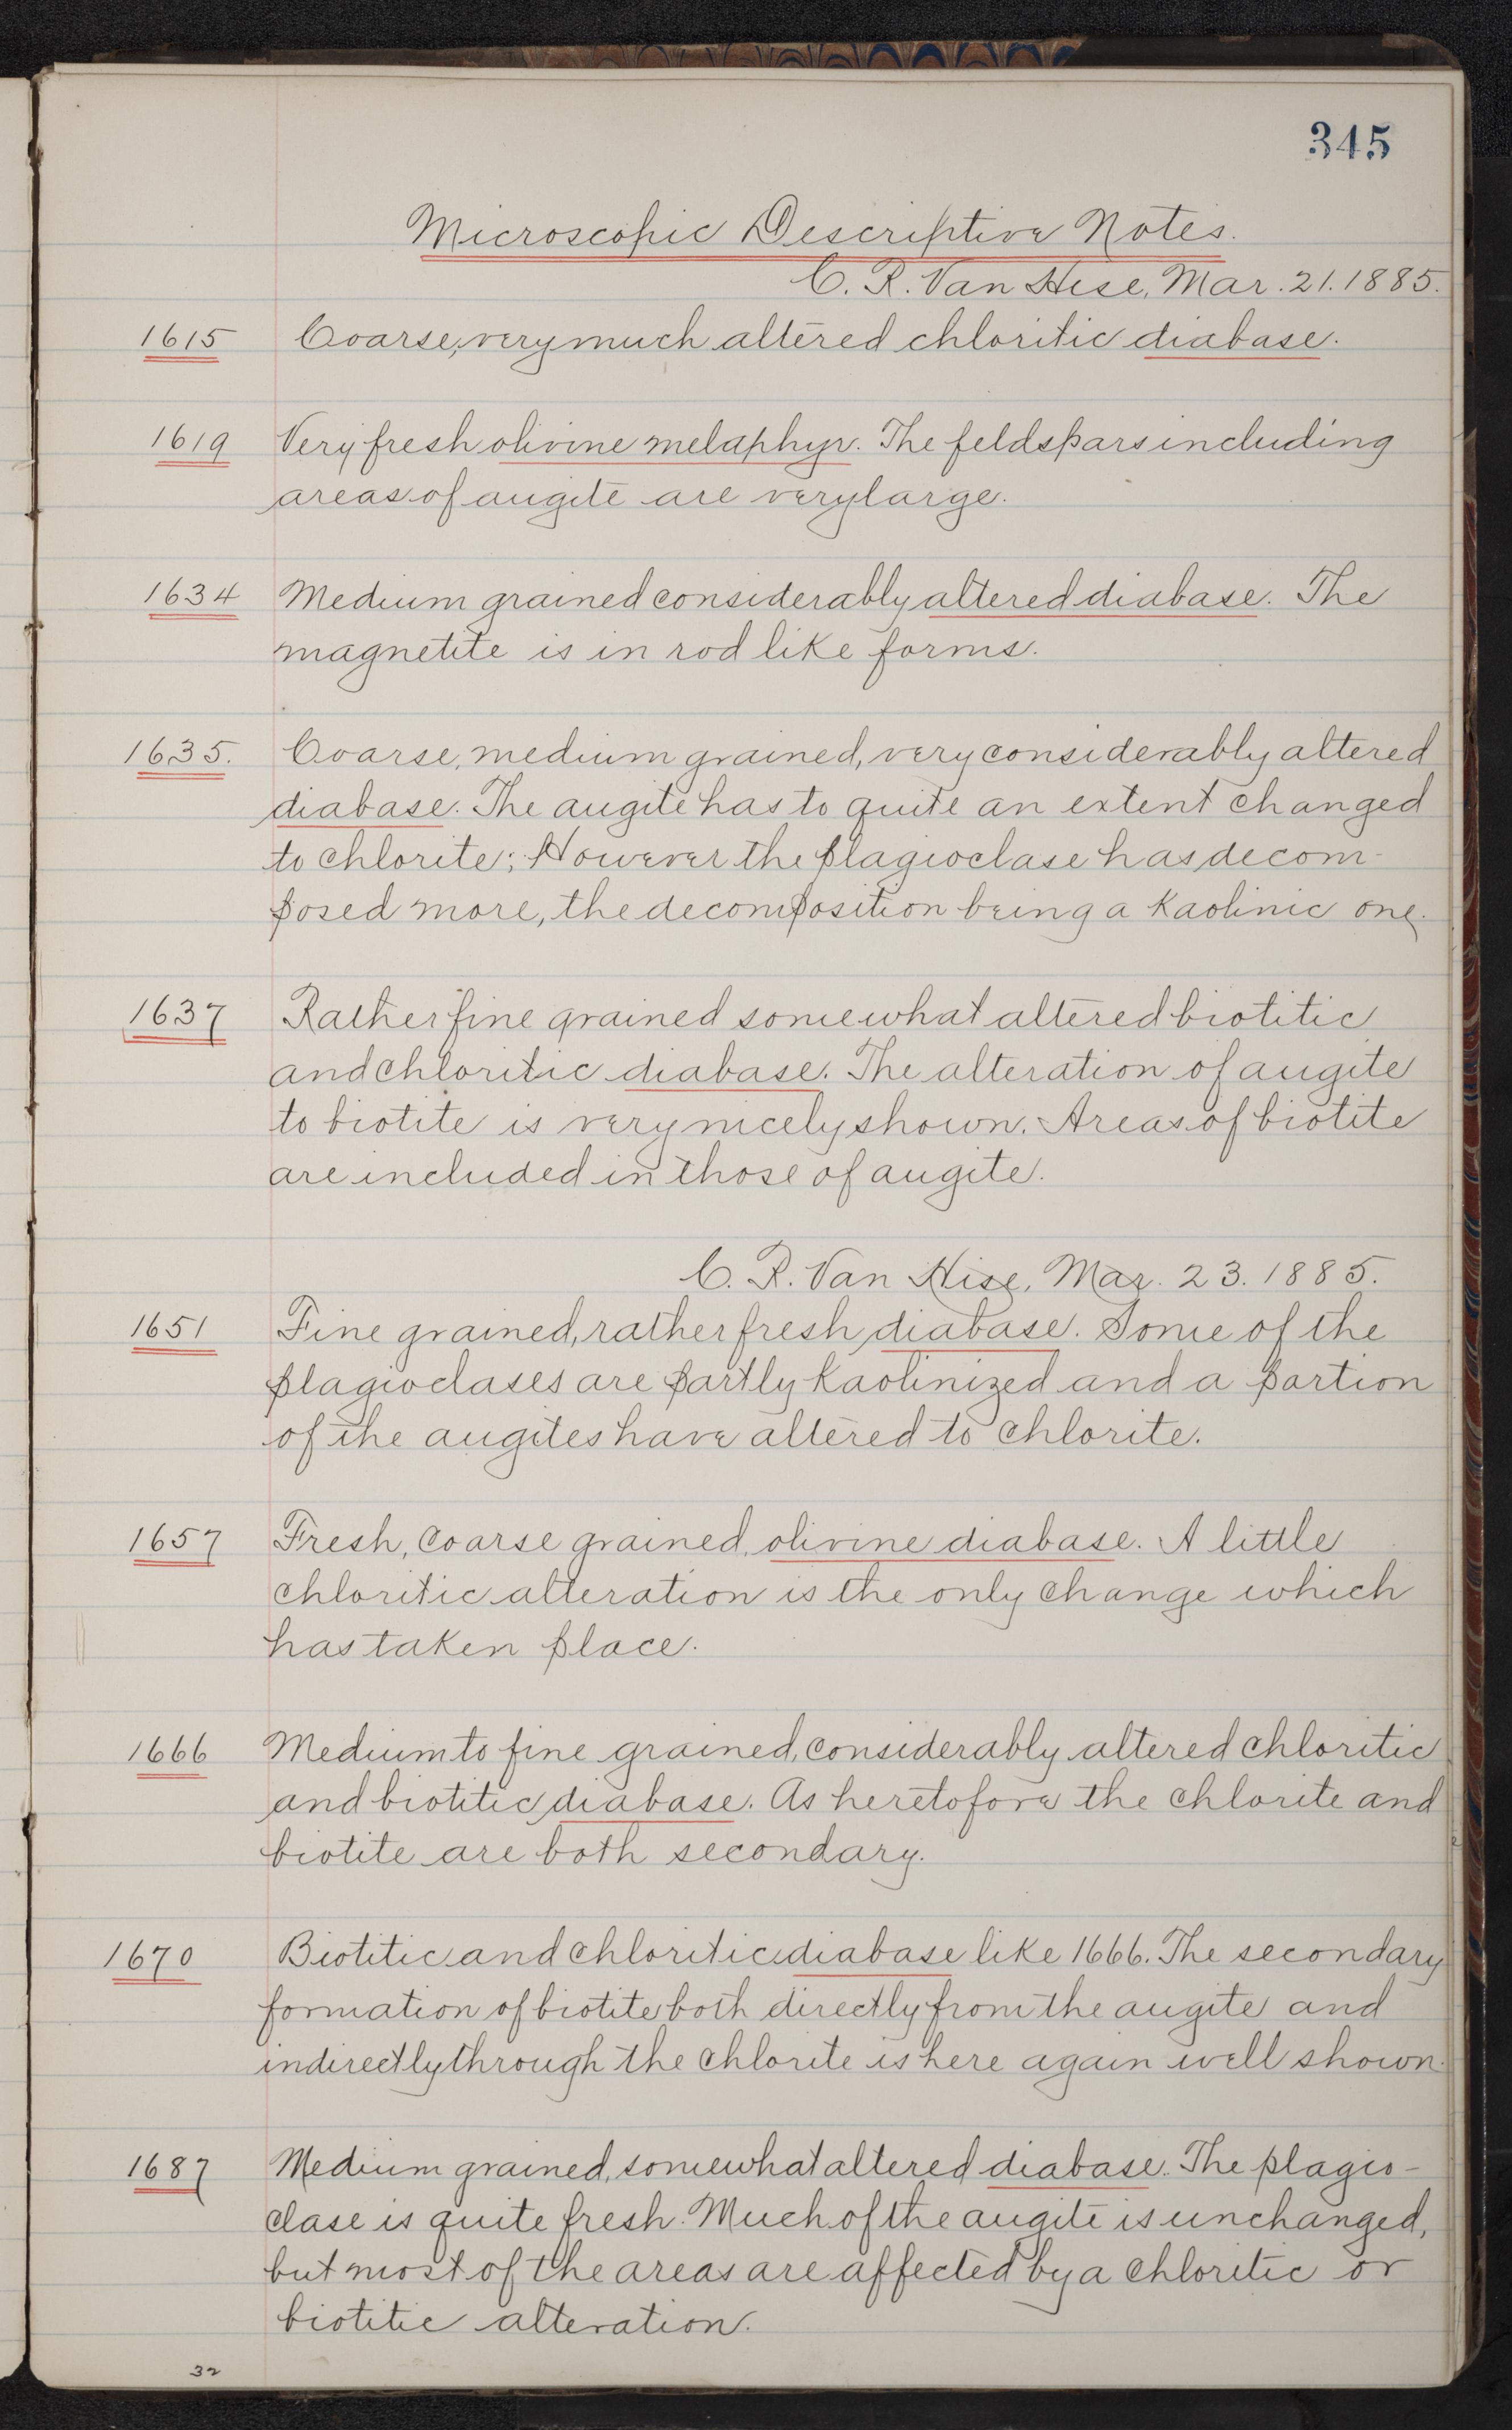 345
Microscopic Descriptive Notes.
C. R. Van Hise, Mar. 21. 1885.
1615 Coarse, very much altered chloritic diabase.
1619 Very fresh olivine melaphyr. The feldspars including
areas of augite are very large.
1634 Medium grained considerably altered diabase. The
magnetite is in rod like forms.
1635. Coarse, medium grained, very considerably altered
diabase. The augite has to quite an extent changed
to chlorite; However the plagioclase has decom-
posed more, the decomposition being a Kaolinic one.
1637 Rather fine grained somewhat altered biotitic
and chloritic diabase. The alteration of augite
to biotite is very nicely shown. Areas of biotite
are included in those of augite.
C. R. Van Hise, Mar. 23. 1885.
1651 Fine grained, rather fresh diabase. Some of the
plagioclases are partly Kaolinized and a portion
of the augites have altered to chlorite.
1657 Fresh, coarse grained, olivine diabase. A little
chloritic alteration is the only change which
has taken place.
1666 Medium to fine grained, considerably altered chloritic
and biotitic diabase. As heretofore the chlorite and
biotite are both secondary.
1670 Biotitic and chloritic diabase like 1666. The secondary
formation of biotite both directly from the augite and
indirectly through the chlorite is here again well shown.
1687 Medium grained, somewhat altered diabase. The plagio-
clase is quite fresh. Much of the augite is unchanged,
but most of the areas are affected by a chloritic or
biotitic alteration.
32